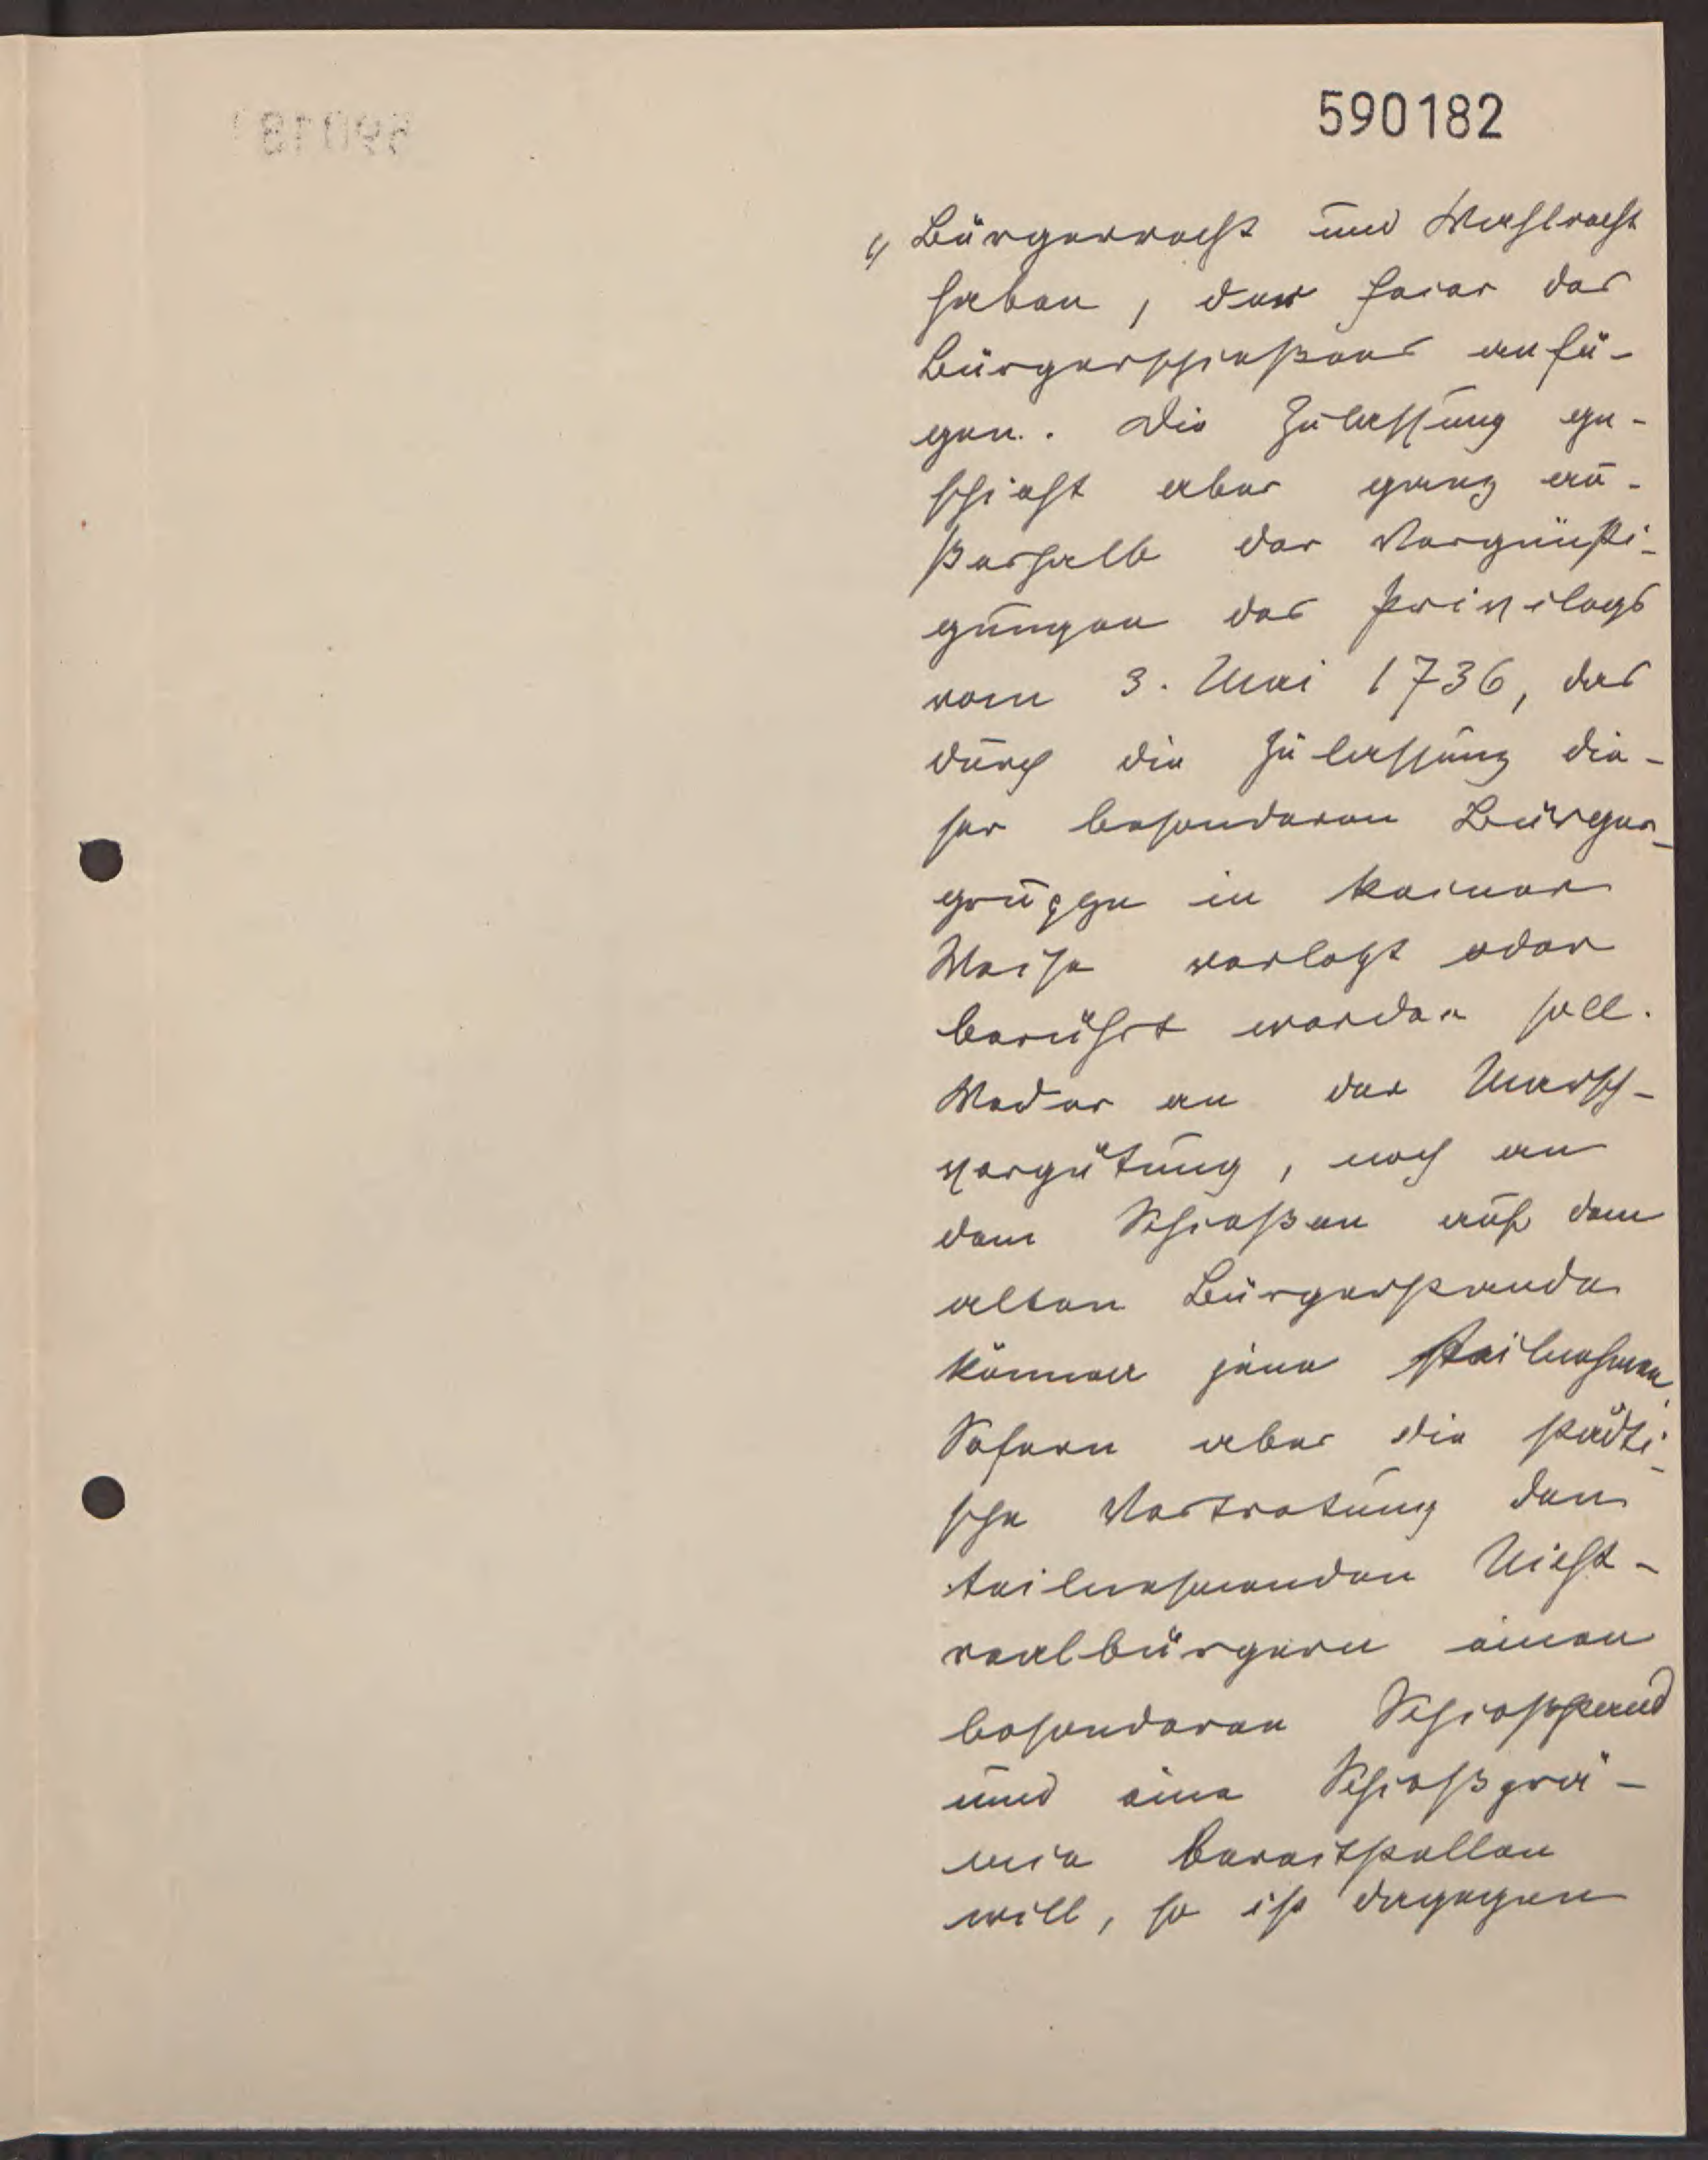 590182
"Bürgerrecht und Wahlrecht
haben, der Feier des
Bürgerschießens anfü-
gen. Die Zulassung ge-
schieht aber ganz au-
ßerhalb der Vergünsti-
gungen des Privilegs
vom 3. Mai 1736, das
durch die Zulassung die-
ser besonderen Bürger-
gruppe in keiner
Weise verletzt oder
berührt werden soll.
Weder an der Marsch-
vergütung, noch an
dem Schießen auf dem
alten Bürgerstande
können jene teilnehmen.
Sofern aber die städti-
sche Vertretung den
teilnehmenden Nicht-
realbürgern einen
besonderen Schießstand
und eine Schießprä-
mie bereitstellen
will, so ist dagegen